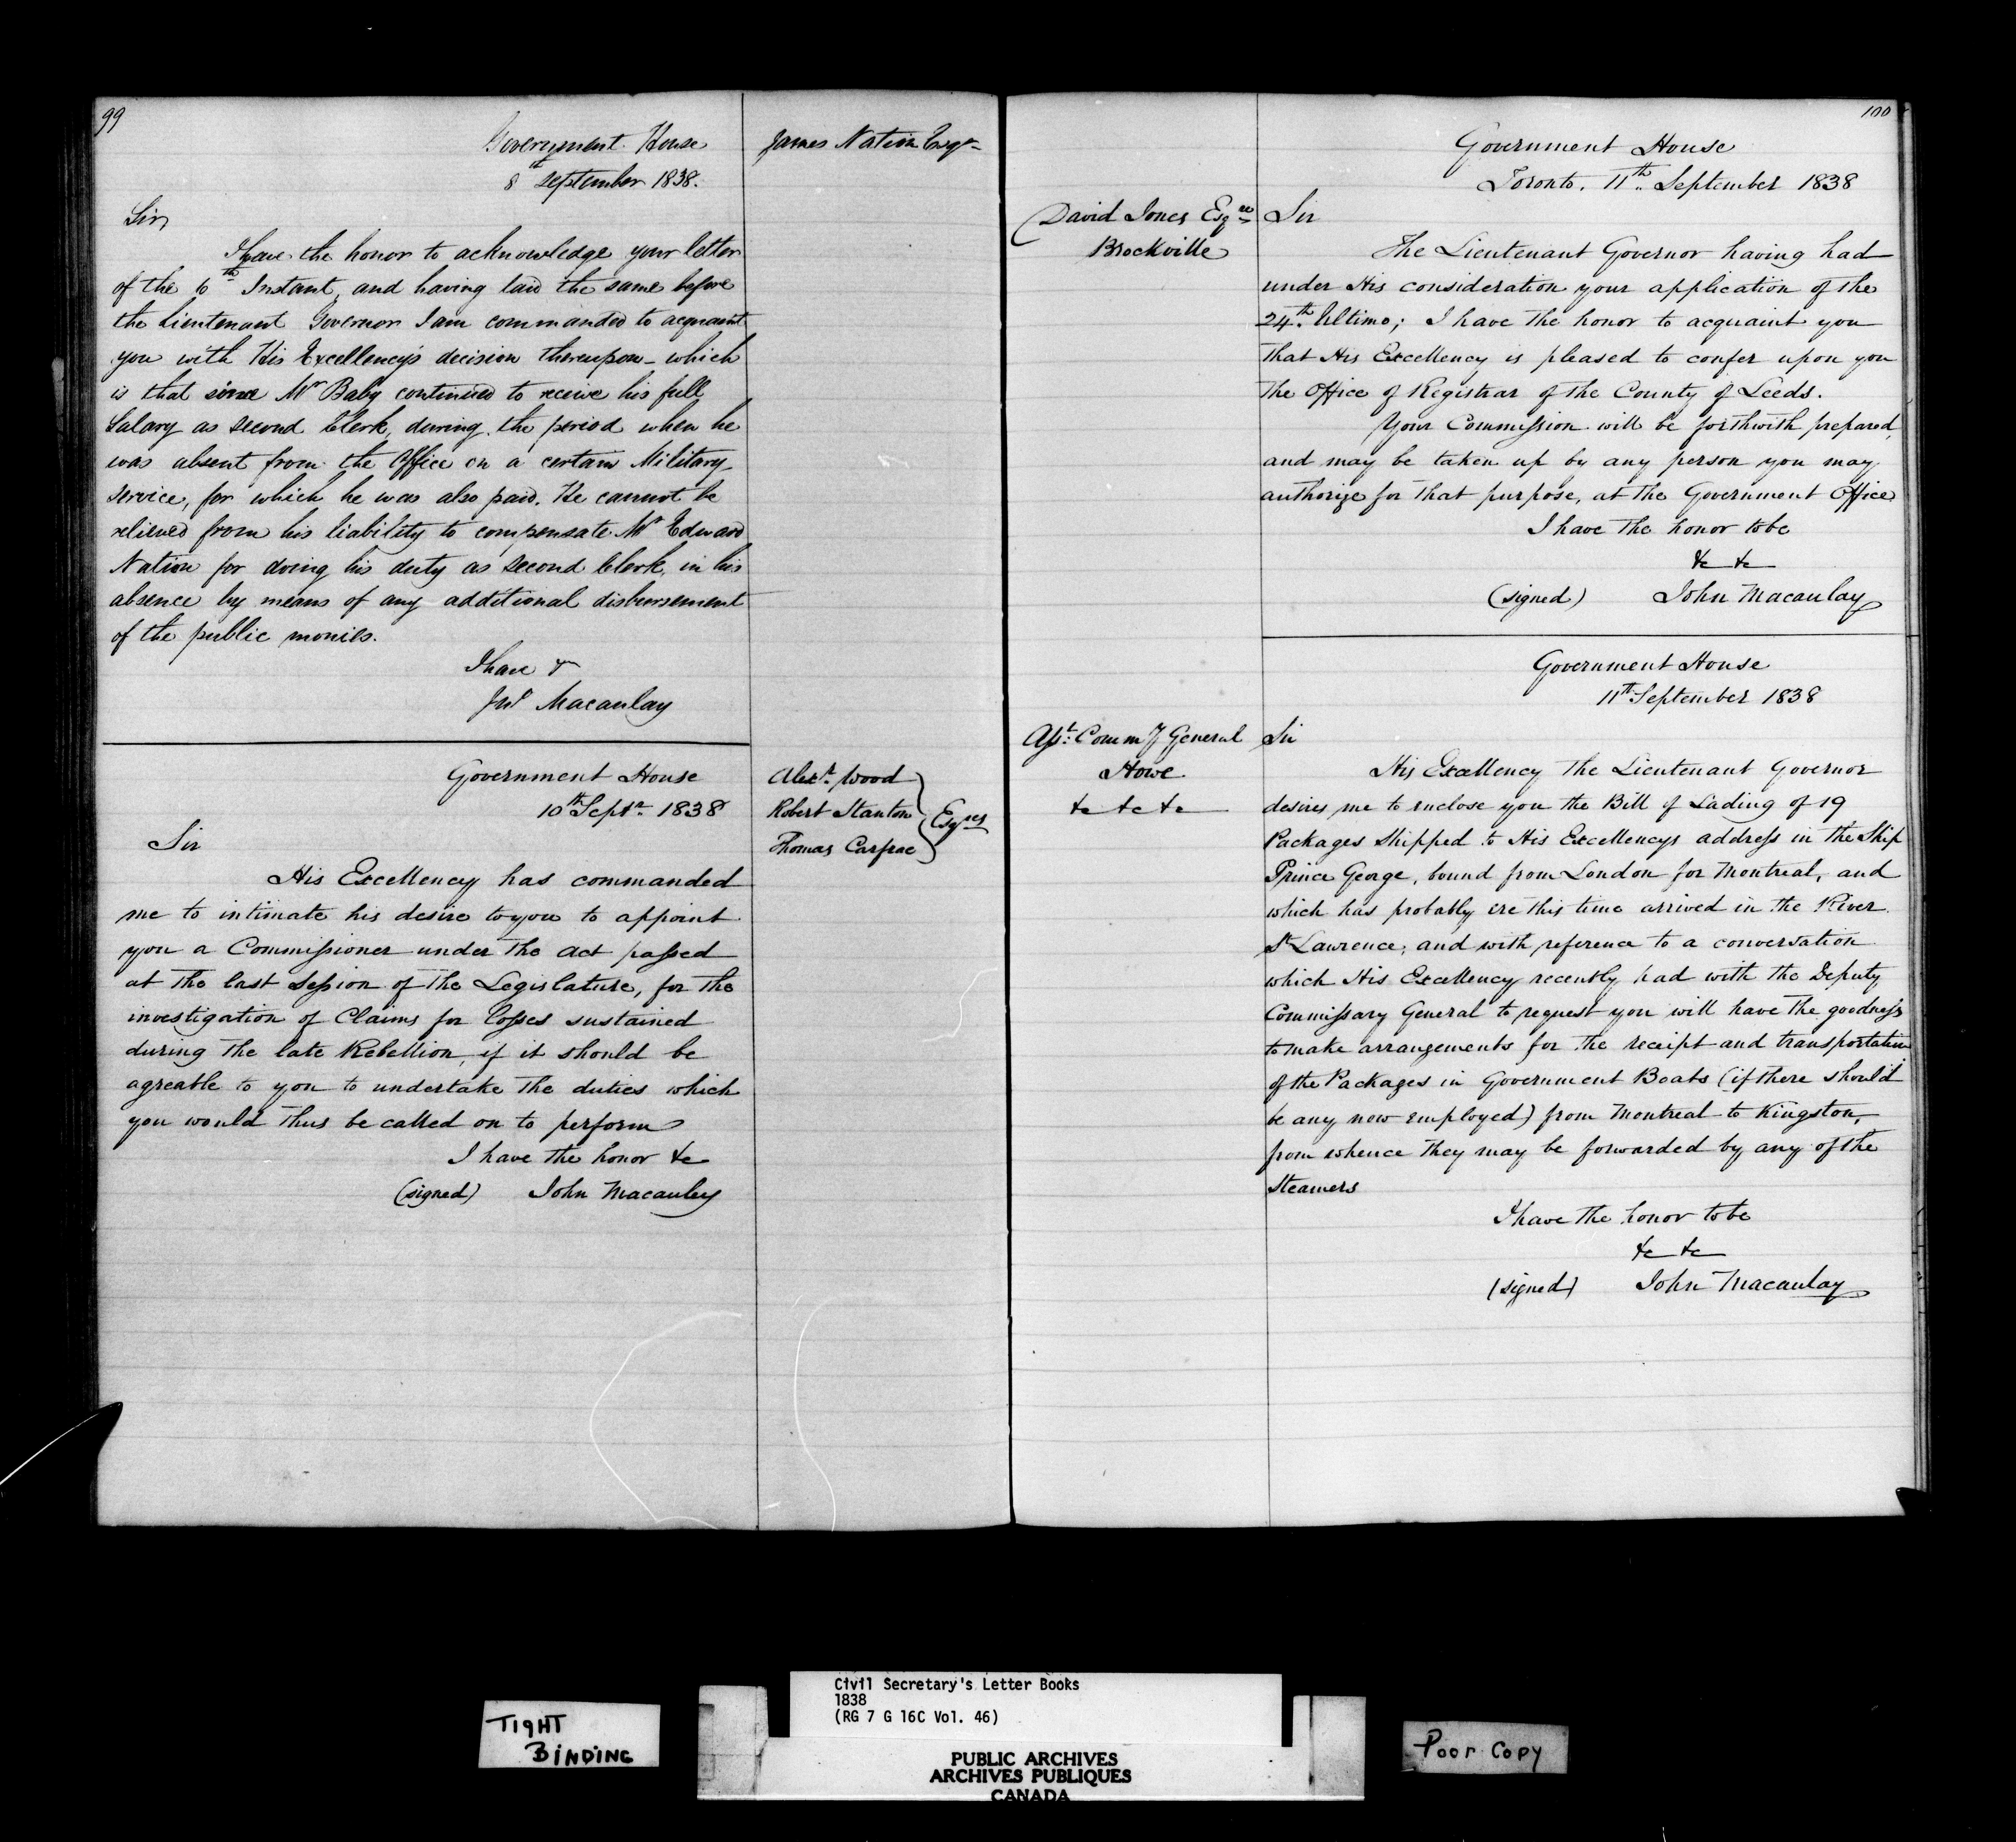 99
Government House
8th September 1838.
James Nation Esqr
Sir,
I have the honor to acknowledge your letter
of the 6th Instant, and having laid the same before
the Lieutenant Governor I am commanded to acquaint
you with His Excellency's decision thereupon - which
is that since Mr Baby continued to receive his full
Salary as second Clerk, during the period when he
was absent from the Office on a certain Military
service, for which he was also paid. He cannot be
relieved from his liability to compensate Mr Edward
Nation for doing his duty as second Clerk, in his
absence by means of any additional disbursement
of the public monies.
I have &
Jno Macaulay
Government House
10th Septr 1838
Alexr Wood
Robert Stanton
Thomas Carfrae
Esqres
Sir
His Excellency has commanded
me to intimate his desire to you to appoint
you a Commissioner under the Act passed
at the last Session of the Legislature, for the
investigation of Claims for losses sustained
during the late Rebellion, if it should be
agreable to you to undertake the duties which
you would thus be called on to perform
I have the honor &c
(signed) John Macauley
100
Government House
Toronto. 11th September 1838
David Jones Esqre
Brockville
Sir
The Lieutenant Governor having had
under His consideration your application of the
24th Ultimo; I have the honor to acquaint you
that His Excellency is pleased to confer upon you
the Office of Registrar of the County of Leeds.
Your Commission will be forthwith prepared,
and may be taken up by any person you may
authorize for that purpose, at the Government Office
I have the honor to be
&c &c
(signed) John Macaulay
Government House
11th September 1838
Asst. Commy General
Howe
&c &c &c
Sir
His Excellency the Lieutenant Governor
desires me to enclose you the Bill of Lading of 19
Packages Shipped to His Excellencys address in the Ship
Prince George, bound from London for Montreal, and
which has probably ere this time arrived in the River
St Lawrence; and with reference to a conversation
which His Excellency recently had with the Deputy
Commissary General to request you will have the goodness
to make arrangements for the receipt and transportation
of the Packages in Government Boats (if there should
be any now employed) from Montreal to Kingston,
from whence they may be forwarded by any of the
Steamers
I have the honor to be
&c &c
(signed) John Macaulay
TIGHT
BINDING
Civil Secretary's Letter Books
1838
(RG 7 G 16C Vol. 46)
PUBLIC ARCHIVES
ARCHIVES PUBLIQUES
CANADA
Poor Copy